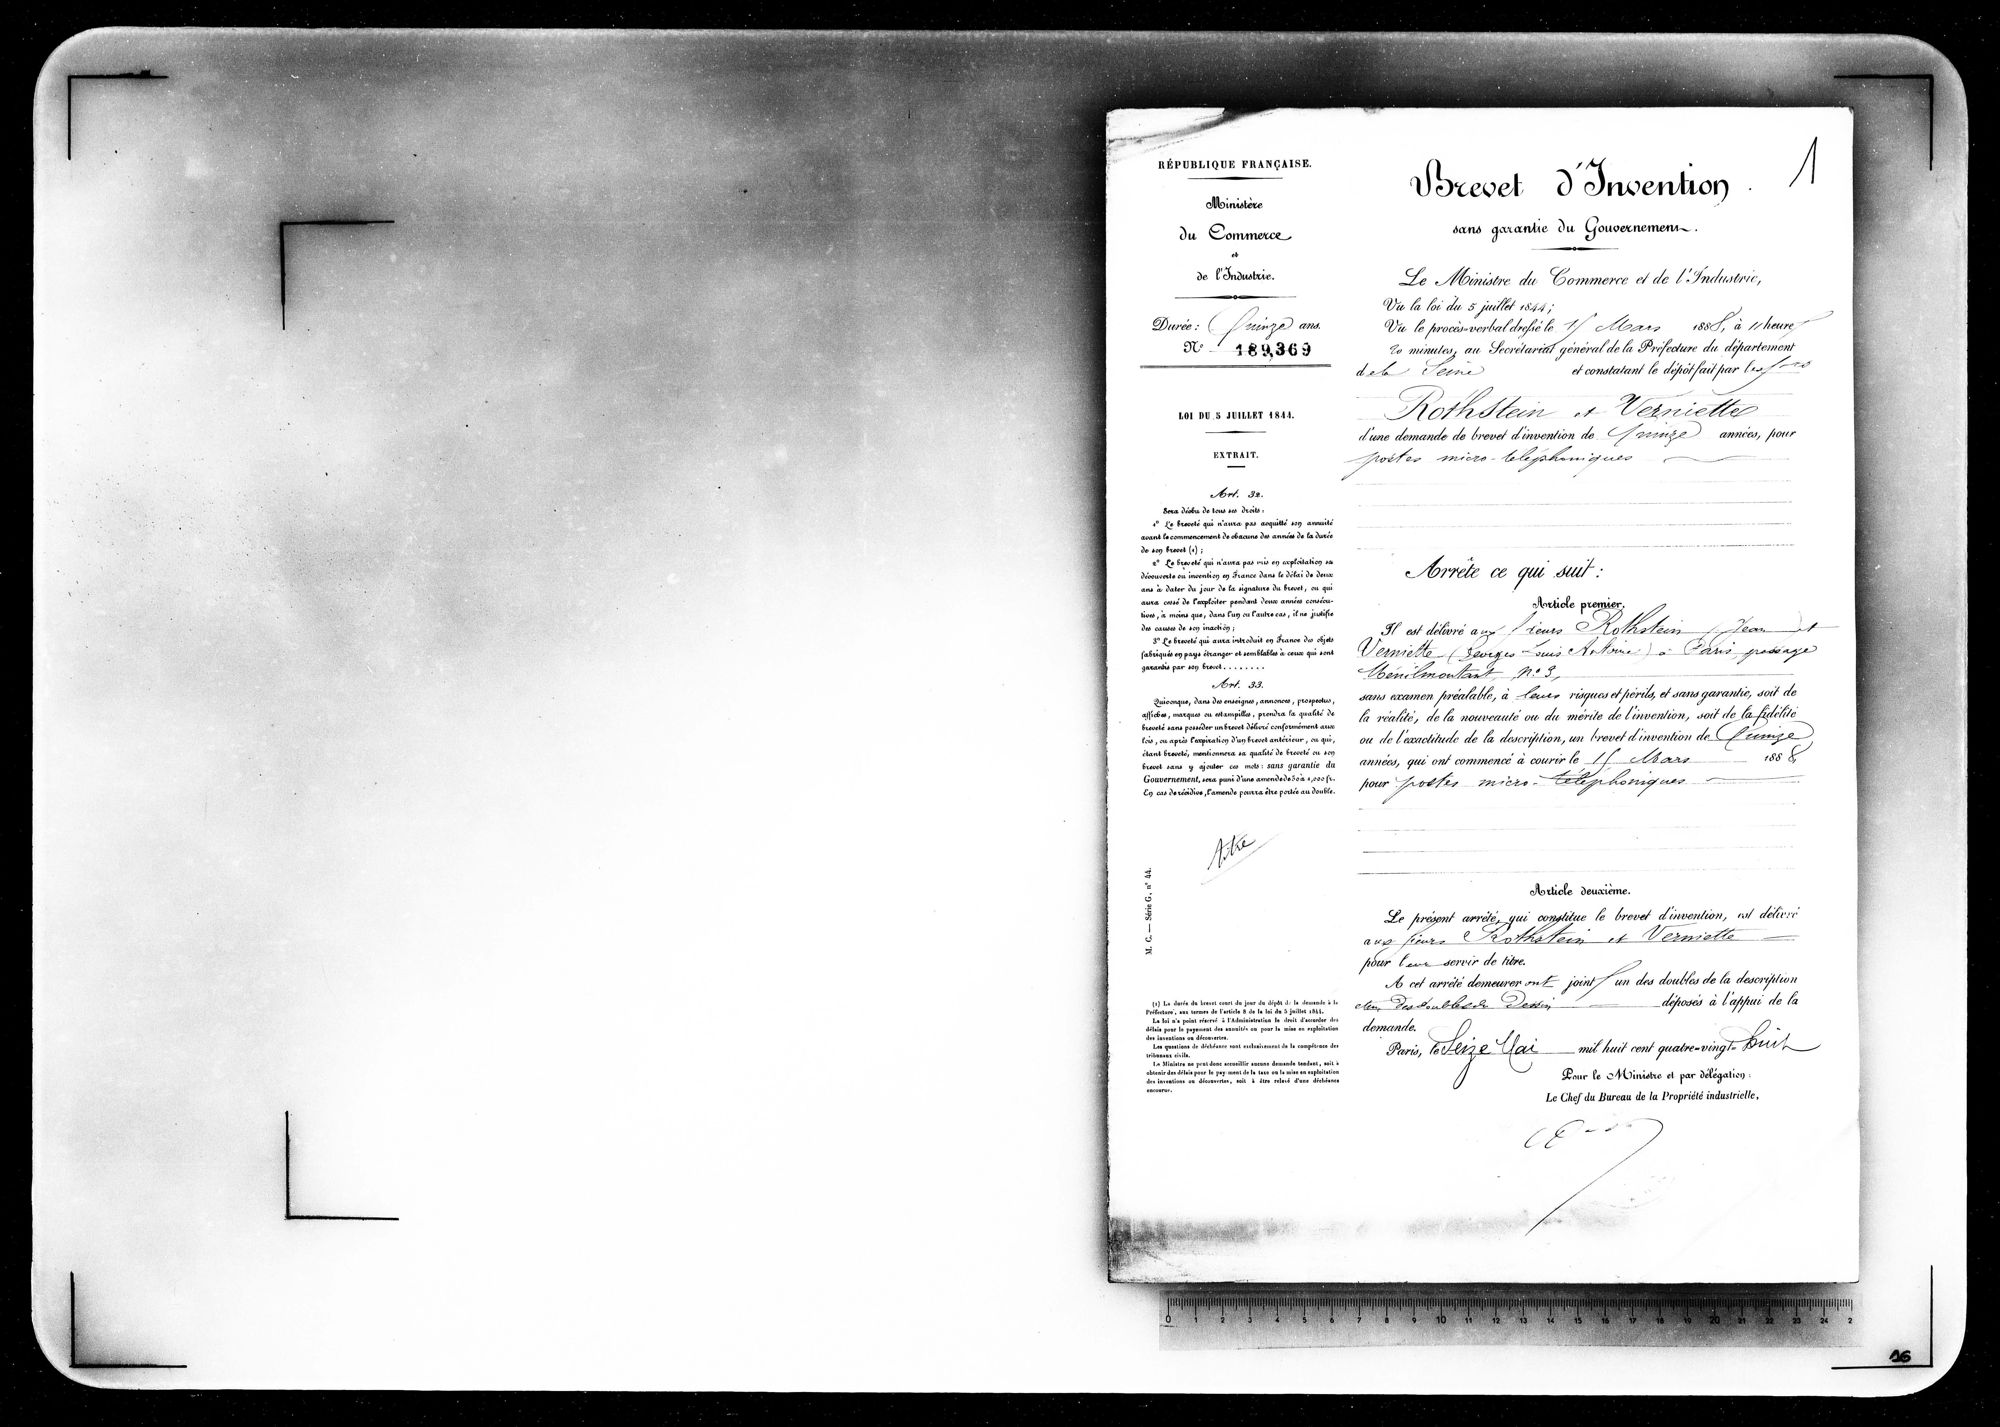 RÉPUBLIQUE FRANÇAISE.
Ministère
du Commerce
et
de l'Industrie.
Durée : Quinze ans.
N° 189,369
LOI DU 5 JUILLET 1844.
EXTRAIT.
Art. 32.
Sera déchu de tous ses droits :
1° Le breveté qui n'aura pas acquitté son annuité
avant le commencement de chacune des années de la durée
de son brevet (1) ;
2° Le breveté qui n'aura pas mis en exploitation sa
découverte ou invention en France dans le délai de deux
ans à dater du jour de la signature du brevet, ou qui
aura cessé de l'exploiter pendant deux années consécu-
tives, à moins que, dans l'un ou l'autre cas, il ne justifie
des causes de son inaction ;
3° Le breveté qui aura introduit en France des objets
fabriqués en pays étranger et semblables à ceux qui sont
garantis par son brevet........
Art. 33.
Quiconque, dans des enseignes, annonces, prospectus,
affiches, marques ou estampilles, prendra la qualité de
breveté sans posséder un brevet délivré conformément aux
lois, ou après l'expiration d'un brevet antérieur, ou qui,
étant breveté, mentionnera sa qualité de breveté ou son
brevet sans y ajouter ces mots : sans garantie du
Gouvernement, sera puni d'une amende de 50 à 1,000 fr.
En cas de récidive, l'amende pourra être portée au double.
titre
M. C. — Série G, n° 44.
(1) La durée du brevet court du jour du dépôt de la demande à la
Préfecture, aux termes de l'article 8 de la loi du 5 juillet 1844.
La loi n'a point réservé à l'Administration le droit d'accorder des
délais pour le payement des annuités ou pour la mise en exploitation
des inventions ou découvertes.
Les questions de déchéance sont exclusivement de la compétence des
tribunaux civils.
Le Ministre ne peut donc accueillir aucune demande tendant, soit à
obtenir des délais pour le payement de la taxe ou la mise en exploitation
des inventions ou découvertes, soit à être relevé d'une déchéance
encourue.
1
Brevet d'Invention
sans garantie du Gouvernement.
Le Ministre du Commerce et de l'Industrie,
Vu la loi du 5 juillet 1844 ;
Vu le procès-verbal dressé le 15 Mars 1888, à 11 heures
20 minutes, au Secrétariat général de la Préfecture du département
de la Seine et constatant le dépôt fait par les
Rothstein et Verniette
d'une demande de brevet d'invention de Quinze années, pour
postes micro-téléphoniques
Arrête ce qui suit :
Article premier.
Il est délivré aux sieurs Rothstein (Jean) et
Verniette (Georges Louis Antoine) à Paris, passage
Ménilmontant, n° 3,
sans examen préalable, à leurs risques et périls, et sans garantie, soit de
la réalité, de la nouveauté ou du mérite de l'invention, soit de la fidélité
ou de l'exactitude de la description, un brevet d'invention de Quinze
années, qui ont commencé à courir le 15 Mars 1888
pour postes micro-téléphoniques
Article deuxième.
Le présent arrêté, qui constitue le brevet d'invention, est délivré
aux sieurs Rothstein et Verniette
pour leur servir de titre.
A cet arrêté demeureront joints un des doubles de la description
et un des doubles du Dessin déposés à l'appui de la
demande.
Paris, le Seize Mai mil huit cent quatre-vingt-huit
Pour le Ministre et par délégation :
Le Chef du Bureau de la Propriété industrielle,
0 1 2 3 4 5 6 7 8 9 10 11 12 13 14 15 16 17 18 19 20 21 22 23 24 2
16